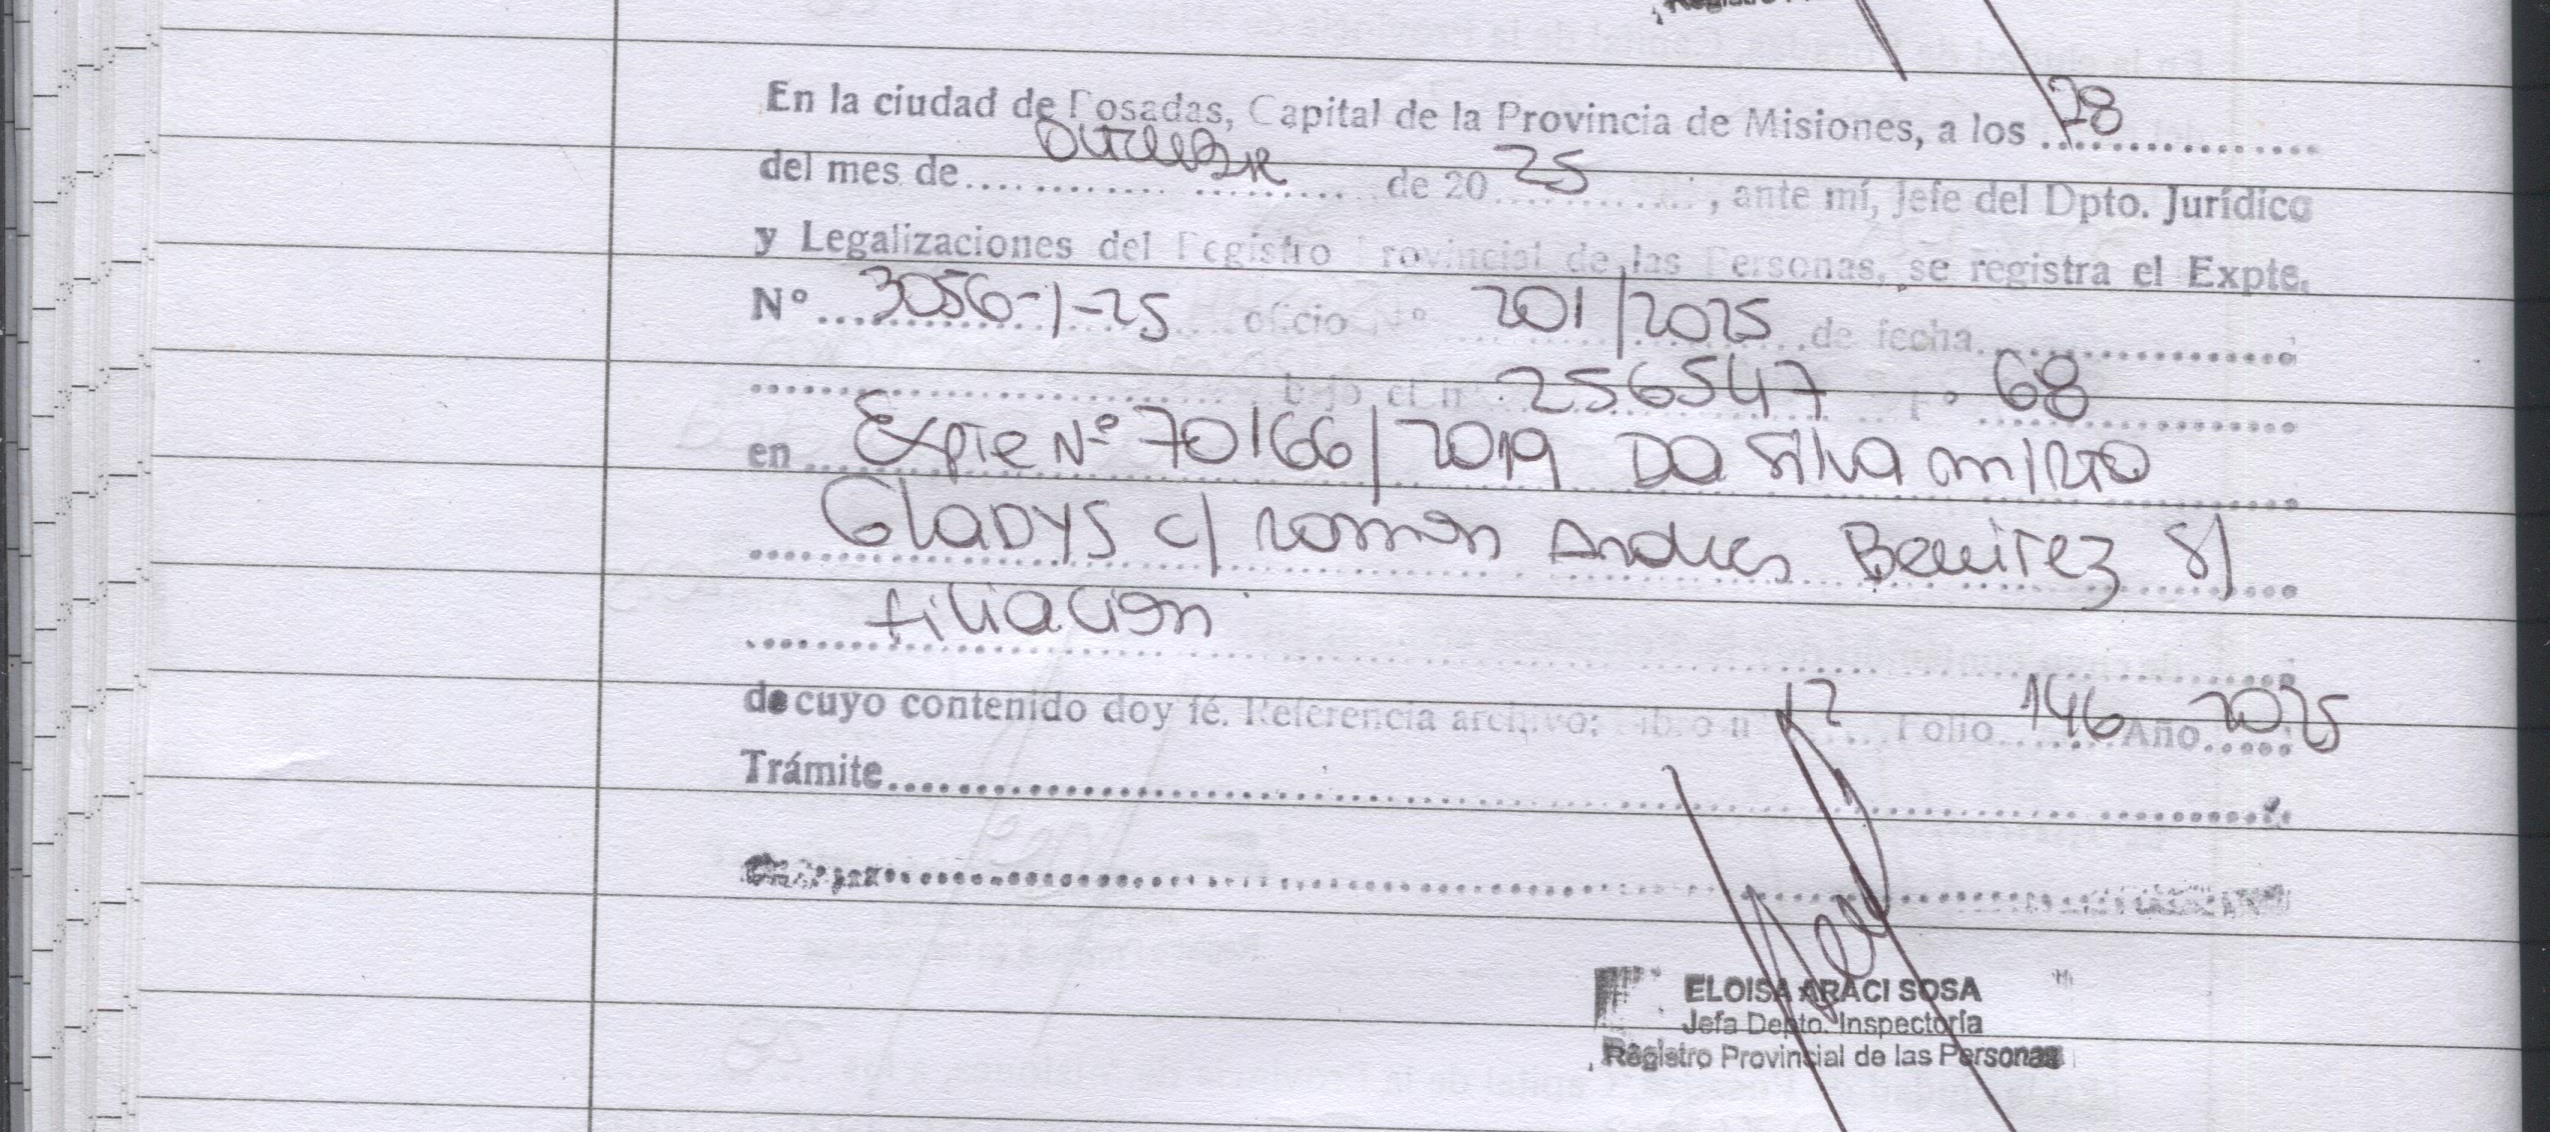 En la ciudad de Posadas, Capital de la Provincia de Misiones, a los 28
del mes de Octubre de 20 25, ante mí, Jefe del Dpto. Jurídico
y Legalizaciones del Registro Provincial de las Personas, se registra el Expte.
Nº 3056-1-25 oficio Nº 201/2025 de fecha
bajo el nº 256547 Fº 68
en Expte Nº 70166/2019 Da Silva
Gladys c/ Roman Andres Benitez s/
filiacion
de cuyo contenido doy fé. Referencia archivo: Libro nº 12 Folio 146 Año 2025
Trámite
ELOISA ARACI SOSA
Jefa Depto. Inspectoría
Registro Provincial de las Personas